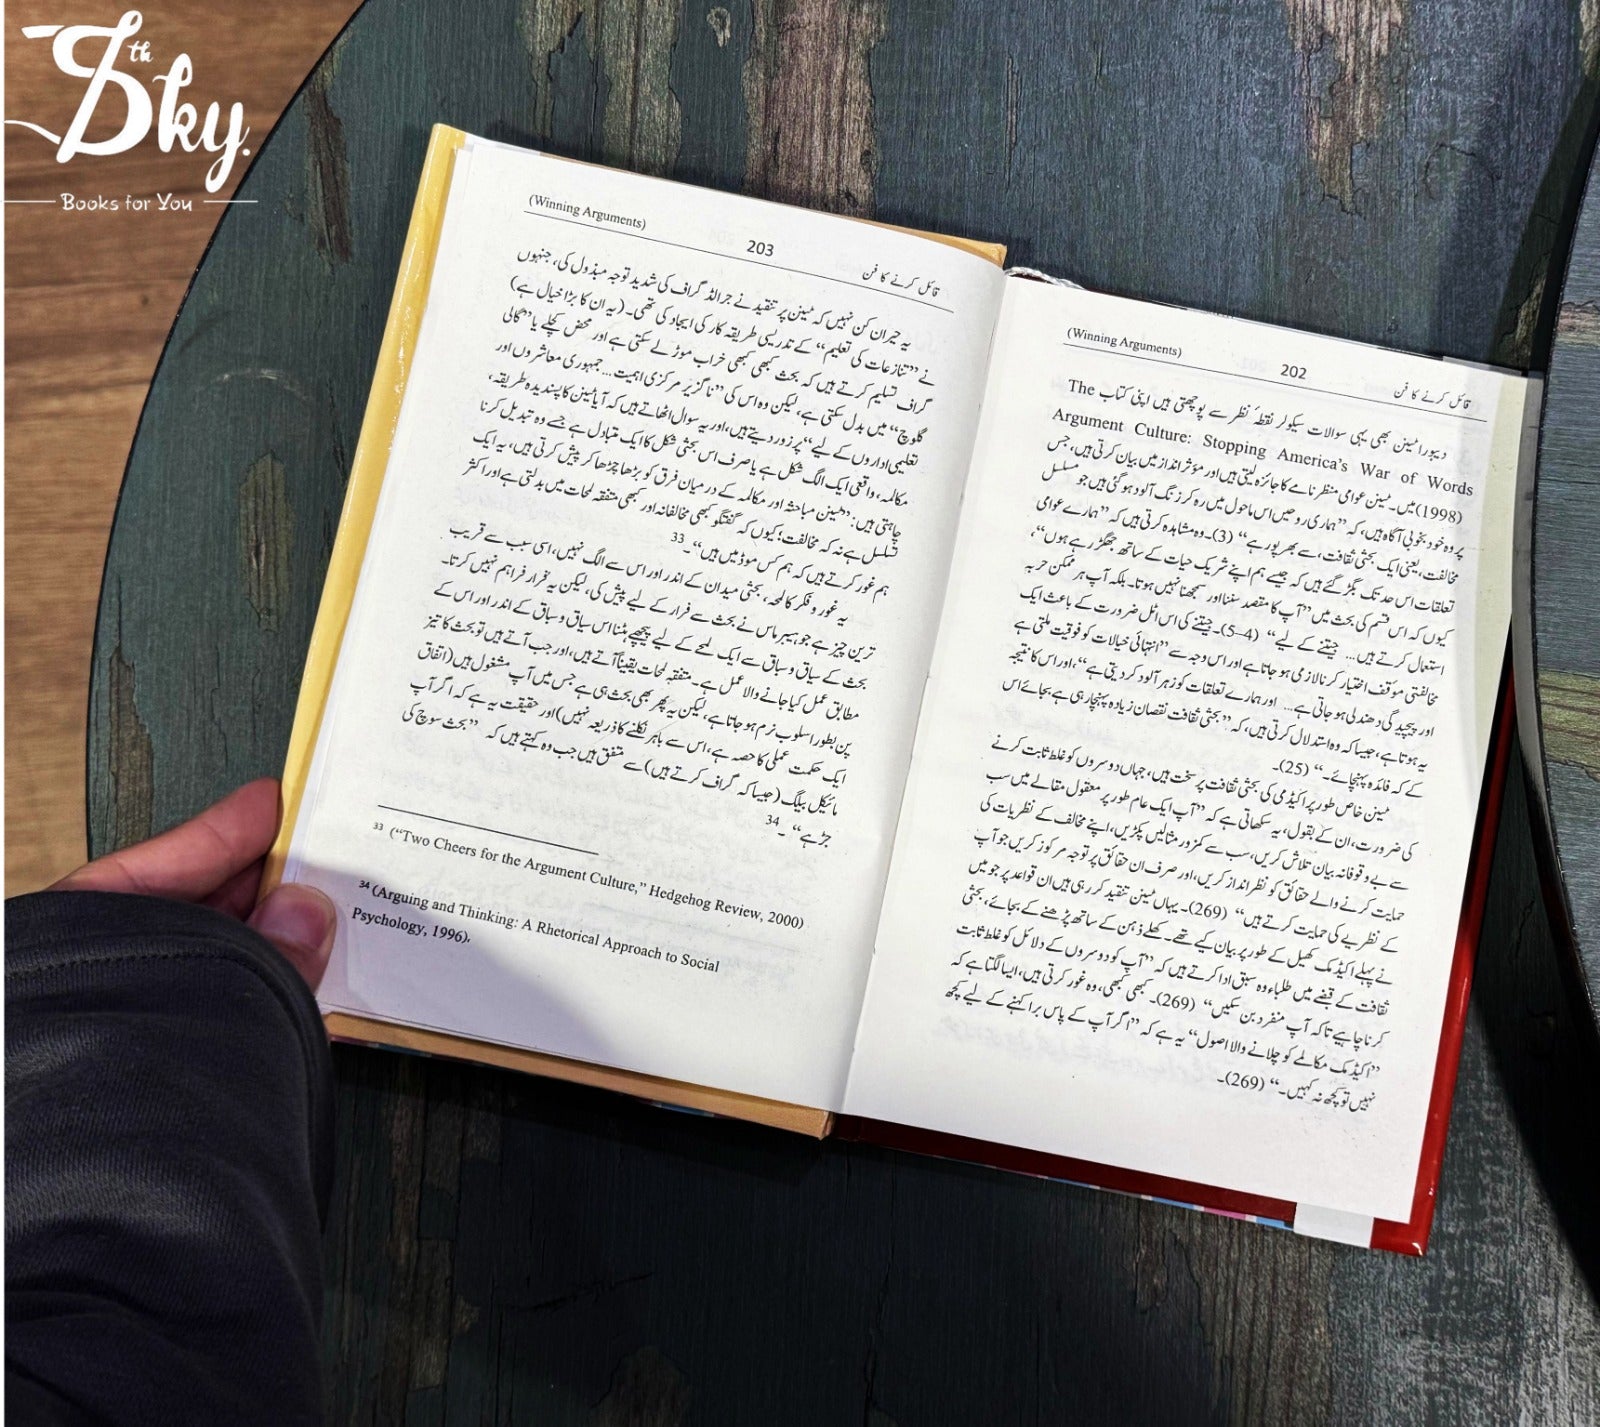 7th Sky.
Books for You
قائل کرنے کا فن 202 (Winning Arguments)
ڈیبورا ٹینن بھی یہی سوالات سیکولر نقطۂ نظر سے پوچھتی ہیں اپنی کتاب The
Argument Culture: Stopping America's War of Words
(1998) میں۔ ٹینن عوامی منظرنامے کا جائزہ لیتی ہیں اور مؤثر انداز میں بیان کرتی ہیں، جس
پر وہ خود بخوبی آگاہ ہیں، کہ ”ہماری روحیں اس ماحول میں رہ کر زنگ آلود ہو گئی ہیں جو مسلسل
مخالفت، یعنی ایک بحثی ثقافت، سے بھرپور ہے“ (3)۔ وہ مشاہدہ کرتی ہیں کہ ”ہمارے عوامی
تعلقات اس حد تک بگڑ گئے ہیں کہ جیسے ہم اپنے شریک حیات کے ساتھ جھگڑ رہے ہوں“،
کیوں کہ اس قسم کی بحث میں ”آپ کا مقصد سننا اور سمجھنا نہیں ہوتا۔ بلکہ آپ ہر ممکن حربہ
استعمال کرتے ہیں... جیتنے کے لیے“ (4–5)۔ جیتنے کی اس اٹل ضرورت کے باعث ایک
مخالفتی موقف اختیار کرنا لازمی ہو جاتا ہے اور اس وجہ سے ”انتہائی خیالات کو فوقیت ملتی ہے
اور پیچیدگی دھندلی ہو جاتی ہے... اور ہمارے تعلقات کو زہر آلود کر دیتی ہے“، اور اس کا نتیجہ
یہ ہوتا ہے، جیسا کہ وہ استدلال کرتی ہیں، کہ ”بحثی ثقافت نقصان زیادہ پہنچا رہی ہے بجائے اس
کے کہ فائدہ پہنچائے۔“ (25)۔
ٹینن خاص طور پر اکیڈمی کی بحثی ثقافت پر سخت ہیں، جہاں دوسروں کو غلط ثابت کرنے
کی ضرورت، ان کے بقول، یہ سکھاتی ہے کہ ”آپ ایک عام طور پر معقول مقالے میں سب
سے بے وقوفانہ بیان تلاش کریں، سب سے کمزور مثالیں پکڑیں، اپنے مخالف کے نظریات کی
حمایت کرنے والے حقائق کو نظر انداز کریں، اور صرف ان حقائق پر توجہ مرکوز کریں جو آپ
کے نظریے کی حمایت کرتے ہیں“ (269)۔ یہاں ٹینن تنقید کر رہی ہیں ان قواعد پر جو میں
نے پہلے اکیڈمک کھیل کے طور پر بیان کیے تھے۔ کھلے ذہن کے ساتھ پڑھنے کے بجائے، بحثی
ثقافت کے قبضے میں طلباء وہ سبق ادا کرتے ہیں کہ ”آپ کو دوسروں کے دلائل کو غلط ثابت
کرنا چاہیے تاکہ آپ منفرد بن سکیں“ (269)۔ کبھی کبھی، وہ غور کرتی ہیں، ایسا لگتا ہے کہ
”اکیڈمک مکالمے کو چلانے والا اصول“ یہ ہے کہ ”اگر آپ کے پاس برا کہنے کے لیے کچھ
نہیں تو کچھ نہ کہیں۔“ (269)۔
قائل کرنے کا فن 203 (Winning Arguments)
یہ حیران کن نہیں کہ ٹینن پر تنقید نے جرالڈ گراف کی شدید توجہ مبذول کی، جنہوں
نے ”تنازعات کی تعلیم“ کے تدریسی طریقہ کار کی ایجاد کی تھی۔ (یہ ان کا بڑا خیال ہے)
گراف تسلیم کرتے ہیں کہ بحث کبھی کبھی خراب موڑ لے سکتی ہے اور محض کچلے یا ”گالی
گلوچ“ میں بدل سکتی ہے، لیکن وہ اس کی ”ناگزیر مرکزی اہمیت... جمہوری معاشروں اور
تعلیمی اداروں کے لیے“ پر زور دیتے ہیں، اور یہ سوال اٹھاتے ہیں کہ آیا ٹینن کا پسندیدہ طریقہ،
مکالمہ، واقعی ایک الگ شکل ہے یا صرف اس بحثی شکل کا ایک متبادل ہے جسے وہ تبدیل کرنا
چاہتی ہیں: ”ٹینن مباحثہ اور مکالمہ کے درمیان فرق کو بڑھا چڑھا کر پیش کرتی ہیں، یہ ایک
تسلسل ہے نہ کہ مخالفت؛ کیوں کہ گفتگو کبھی مخالفانہ اور کبھی متفقہ لمحات میں بدلتی ہے اور اکثر
ہم غور کرتے ہیں کہ ہم کس موڈ میں ہیں“۔33
یہ غور و فکر کا لمحہ، بحثی میدان کے اندر اور اس سے الگ نہیں، اسی سبب سے قریب
ترین چیز ہے جو ہیبرماس نے بحث سے فرار کے لیے پیش کی، لیکن یہ فرار فراہم نہیں کرتا۔
بحث کے سیاق و سباق سے ایک لمحے کے لیے پیچھے ہٹنا اس سیاق و سباق کے اندر اور اس کے
مطابق عمل کیا جانے والا عمل ہے۔ متفقہ لمحات یقیناً آتے ہیں، اور جب آتے ہیں تو بحث کا تیز
پن بطور اسلوب نرم ہو جاتا ہے، لیکن یہ پھر بھی بحث ہی ہے جس میں آپ مشغول ہیں (اتفاق
ایک حکمت عملی کا حصہ ہے، اس سے باہر نکلنے کا ذریعہ نہیں) اور حقیقت یہ ہے کہ اگر آپ
مائیکل بیلگ (جیسا کہ گراف کرتے ہیں) سے متفق ہیں جب وہ کہتے ہیں کہ ”بحث سوچ کی
جڑ ہے“۔34
33 (“Two Cheers for the Argument Culture,” Hedgehog Review, 2000)
34 (Arguing and Thinking: A Rhetorical Approach to Social
Psychology, 1996).